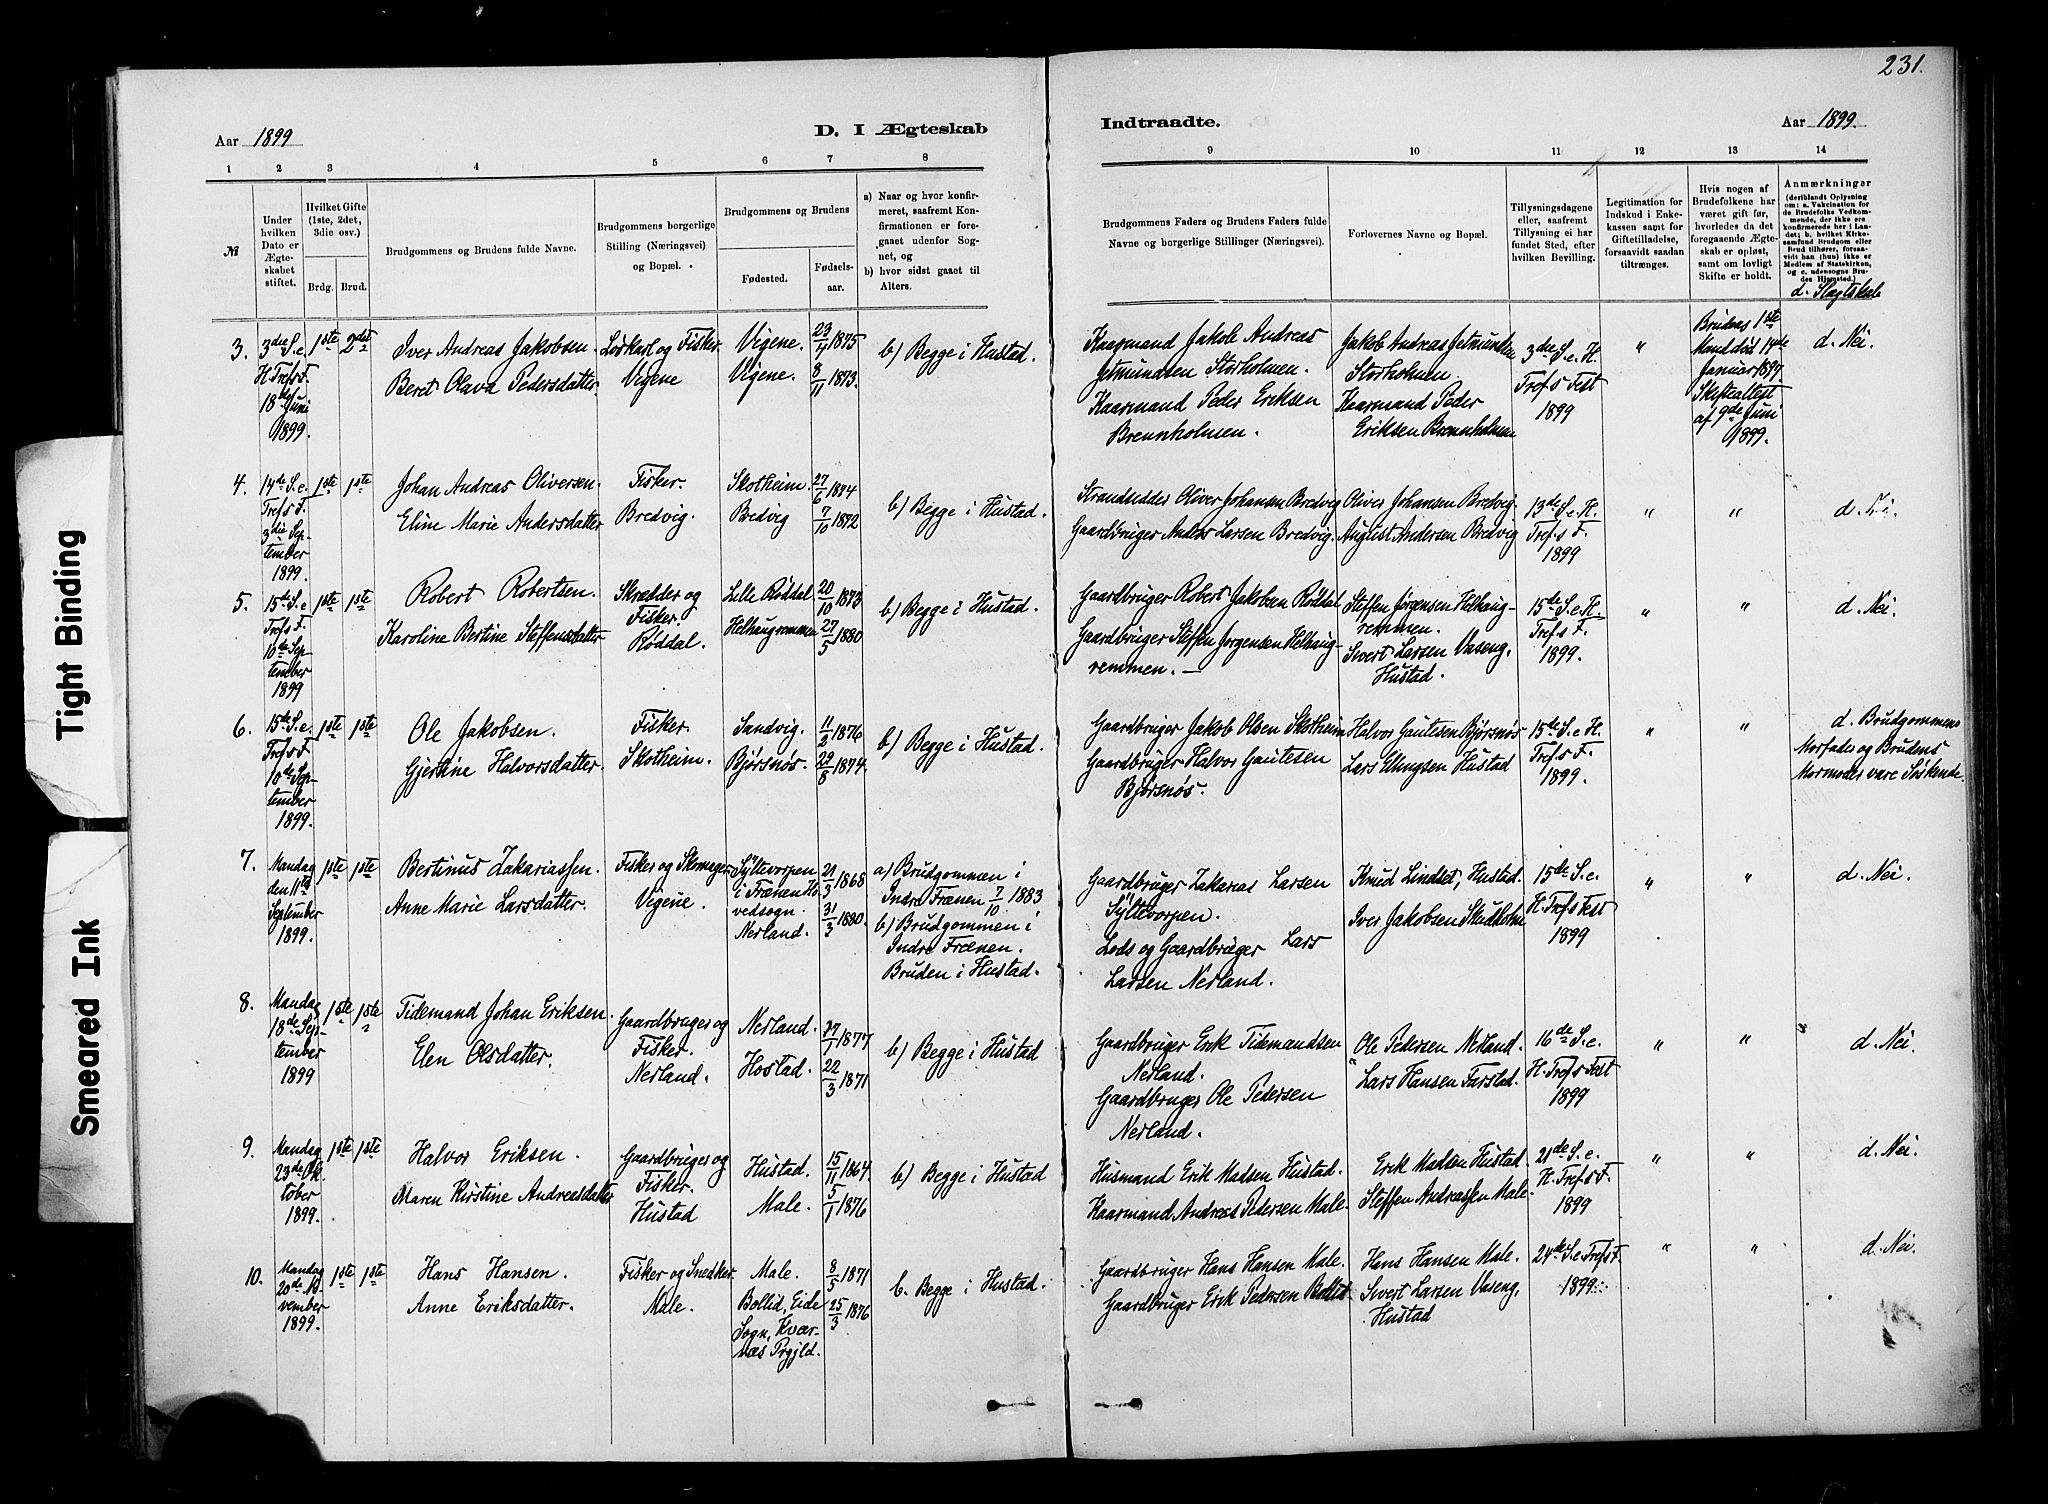 231.
Tight Binding
Smeared Ink
Aar 1899
D. I Ægteskab
Indtraadte.
Aar 1899.
1 2 3 4 5 6 7 8
9 10 11 12 13 14
№
Under
hvilken
Dato er
Ægte-
skabet
stiftet.
Hvilket Gifte
(1ste, 2det,
3die osv.)
Brdg. Brud.
Brudgommens og Brudens fulde Navne.
Brudgommens borgerlige
Stilling (Næringsvei)
og Bopæl.
Brudgommens og Brudens
Fødested.
Fødsels-
aar.
a) Naar og hvor konfir-
meret, saafremt Kon-
firmationen er fore-
gaaet udenfor Sog-
net, og
b) hvor sidst gaaet til
Alters.
Brudgommens Faders og Brudens Faders fulde
Navne og borgerlige Stillinger (Næringsvei).
Forlovernes Navne og Bopæl.
Tillysningsdagene
eller, saafremt
Tillysning ei har
fundet Sted, efter
hvilken Bevilling.
Legitimation for
Indskud i Enke-
kassen samt for
Giftetilladelse,
forsaavidt saadan
tiltrænges.
Hvis nogen af
Brudefolkene har
været gift før,
hvorledes da det
foregaaende Ægte-
skab er opløst,
samt om lovligt
Skifte er holdt.
Anmærkninger
(deriblandt Oplysning
om: a. Vakcination for
de Brudefolks Vedkom-
mende, der ikke ere
konfirmerede her i Lan-
det; b. hvilket Kirke-
samfund Brudgom eller
Brud tilhører, forsaa-
vidt han (hun) ikke er
Medlem af Statskirken,
og c. udensogns Bru-
des Hjemsted.)
d. Slægtskab
3.
3die S. e.
H. Tref.s F.
18de Juni
1899.
1ste 2det
Iver Andreas Jakobsen.
Beret Olava Pedersdatter.
Loskarl og Fisker.
Vigene
Vigene.
Vigene.
23/4 1875
8/11 1873.
b) Begge i Hustad.
Kaarmand Jakob Andreas
Jetmundsen Storholmen.
Kaarmand Peder Eriksen
Brennholmen.
Jakob Andreas Jetmundsen
Storholmen.
Kaarmand Peder
Eriksen Brennholmen
3die S. e. H.
Tref.s Fest
1899
"
Brudens 1ste
Mand død 14de
Januar 1897.
Skifteattest
af 9de Juni
1899.
d. Nei.
4.
14de S. e.
Tref.s F.
3die Sep-
tember
1899.
1ste 1ste
Johan Andreas Oliversen.
Eline Marie Andersdatter
Fisker.
Bredvig.
Skotheim.
Bredvig
27/6 1874
7/10 1872
b) Begge i Hustad.
Strandsidder Oliver Johansen Bredvig
Gaardbruger Anders Larsen Bredvig.
Oliver Johansen Bredvig.
August Andersen Bredvig
13de S. e. H.
Tref.s F.
1899
"
"
5.
15de S. e
Tref.s F.
10de Sep-
tember
1899
1ste 1ste
Robert Robertsen.
Karoline Bertine Steffensdatter
Skrædder og
Fisker.
Røddal.
Lille Røddal
Helhaugremmen
20/10 1873
27/5 1880
b) Begge i Hustad.
Gaardbruger Robert Jakobsen Røddal
Gaardbruger Steffen Jørgensen Helhaug-
remmen.
Steffen Jørgensen Helhaug-
remmen.
Sivert Larsen Vaseng,
Hustad.
15de S. e. H.
Tref.s F.
1899.
"
"
d. Nei.
6.
15de S. e.
Tref.s F.
10de Sep-
tember
1899.
1ste 1ste
Ole Jakobsen.
Gjertine Halvorsdatter.
Fisker.
Skotheim.
Sandvig.
Bjørsnøs.
11/2 1876
29/8 1874.
b) Begge i Hustad.
Gaardbruger Jakob Olsen Skotheim
Gaardbruger Halvor Gautesen
Bjørsnøs.
Halvor Gautesen Bjørsnøs
Lars Hustad
15de S. e. H.
Tref.s F.
1899.
"
"
d. Brudgommens
Morfader og Brudens
Mormoder vare Søskende.
7.
Mandag
den 11te
September
1899.
1ste 1ste
Bertinus Zakariassen.
Anne Marie Larsdatter.
Fisker og Skomager
Vigene.
Syltevorpen
i Frænen Ho-
vedsogn.
Nerland.
21/3 1868
31/3 1880.
a) Brudgommen i
Indre Frænen 7/10 1883
b) Brudgommen i
Indre Frænen.
Bruden i Hustad.
Gaardbruger Zakarias Larsen
Syltevorpen.
Lods og Gaardbruger Lars
Larsen Nerland.
Knud Lindset, Hustad.
Iver Jakobsen Skudholm
15de S. e.
H. Tref.s Fest
1899
"
"
d. Nei.
8.
Mandag
18de Sep-
tember
1899
1ste 1ste
Tidemand Johan Eriksen.
Elen Olsdatter.
Gaardbruger og
Fisker.
Nerland.
Nerland.
Hostad.
1877
22/3 1871
b) Begge i Hustad
Gaardbruger Erik Tidemandsen
Nerland.
Gaardbruger Ole Pedersen
Nerland.
Ole Pedersen Nerland.
Lars Hansen Farstad.
16de S. e.
H. Tref.s Fest
1899
"
"
d. Nei.
9.
Mandag
23de Ok-
tober
1899.
1ste 1ste
Halvor Eriksen.
Maren Kirstine Andreasdatter
Gaardbruger og
Fisker.
Hustad
Hustad.
Male.
15/11 1864.
5/1 1876
b) Begge i Hustad
Husmand Erik Madsen Hustad.
Kaarmand Andreas Pedersen Male.
Erik Madsen Hustad.
Steffen Andreassen Male.
21de S. e.
H. Tref.s F.
1899
"
"
d. Nei.
10.
Mandag
20de No-
vember
1899.
1ste 1ste
Hans Hansen.
Anne Eriksdatter.
Fisker og Snedker.
Male.
Male.
Bollid, Eide
Sogn, Kvær-
næs Prgjld.
8/3 1871
25/3 1876
b. Begge i Hustad.
Gaardbruger Hans Hansen Male.
Gaardbruger Erik Pedersen Bollid
Hans Hansen Male.
Sivert Larsen Vaseng,
Hustad
24de S. e. Tref.s F.
1899.
"
"
d. Nei.